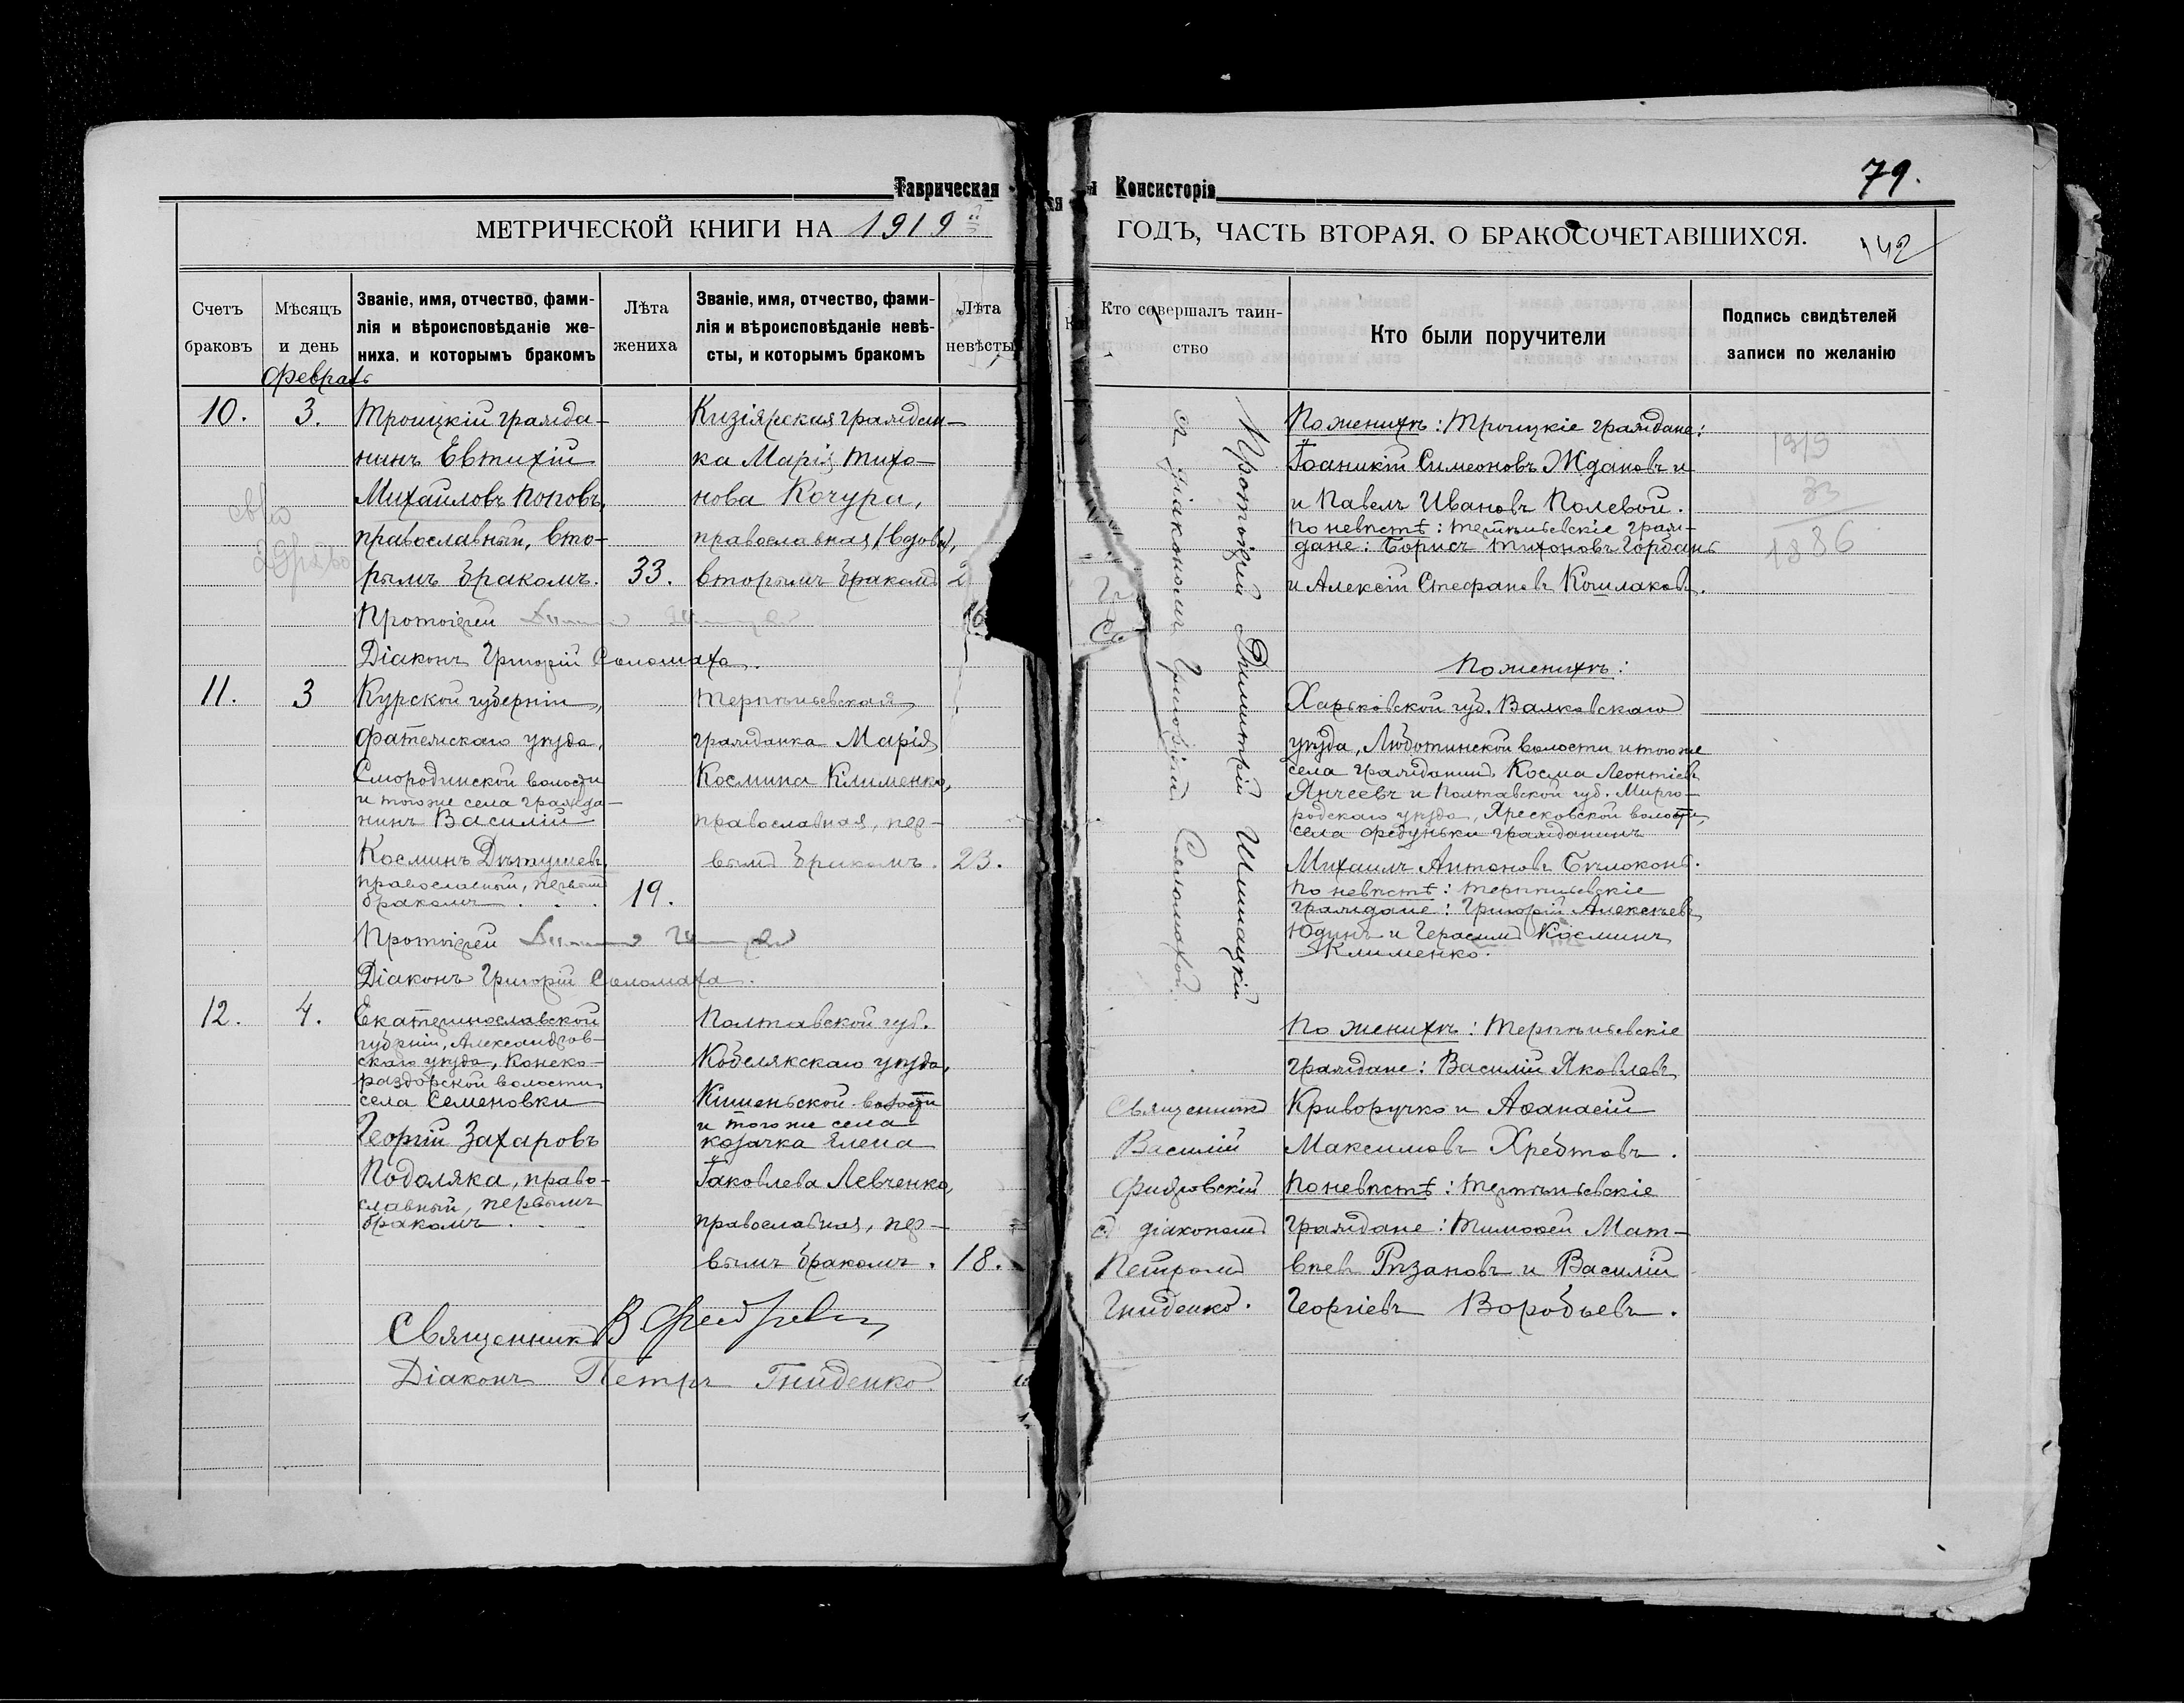 Таврическая
Консисторія
79.
МЕТРИЧЕСКОЙ КНИГИ НА 1919й
ГОДЪ, ЧАСТЬ ВТОРАЯ. О БРАКОСОЧЕТАВШИХСЯ.
142
Счетъ браковъ
Мѣсяцъ и день
Званіе, имя, отчество, фами-
лія и вѣроисповѣданіе же-
ниха, и которымъ бракомъ
Лѣта жениха
Званіе, имя, отчество, фами-
лія и вѣроисповѣданіе невѣ-
сты, и которымъ бракомъ
Лѣта невѣсты
Кто совершалъ таин-
ство
Кто были поручители
Подпись свидѣтелей
записи по желанію
Февраль
10.
3.
Троицкій гражда-
нинъ Евтихій
Михаиловъ Поповъ,
православный, вто-
рымъ бракомъ.
33.
Кизіярская граждан-
ка Марія Тихо-
нова Кочура,
православная (вдова),
вторымъ бракомъ
2
Протоіерей
Діаконъ Григорій Соломаха.
Протоіерей Димитрій Шпшацкій
съ діакономъ Григоріемъ Соломахой.
По женихѣ: Троицкіе граждане:
Іоаникій Симеоновъ Ждановъ и
и Павелъ Ивановъ Полевой.
По невѣстѣ: Терпѣньевскіе граж-
дане: Борисъ Тихоновъ Горбань
и Алексій Стефановъ Кошлаковъ.
1919
33
1886
11.
3
Курской губерніи,
Фатежскаго уѣзда,
Смородинской волости
и того же села гражда-
нинъ Василій
Косминъ Дѣтушевъ,
православный, первымъ
бракомъ . . .
19.
Терпѣньевская
гражданка Марія
Космина Клименко,
православная, пер-
вымъ бракомъ.
23.
Протоіерей
Діаконъ Григорій Соломаха.
По женихѣ:
Харьковской губ. Валковскаго
уѣзда, Люботинской волости и того же
села гражданинъ Косма Леонтіевъ
Янчеевъ и Полтавской губ. Мирго-
родскаго уѣзда, Яресковской волости,
села Федуньки гражданинъ
Михаилъ Антоновъ Бѣлоконь.
По невѣстѣ: Терпѣньевскіе
граждане: Григорій Алексѣевъ
Юдинъ и Герасимъ Косминъ
Клименко.
12.
4.
Екатеринославской
губерніи, Александров-
скаго уѣзда, Конеко-
раздорской волости
села Семеновки
Георгій Захаровъ
Подоляка, право-
славный, первымъ
бракомъ . . .
Полтавской губ.
Кобелякскаго уѣзда,
Кишеньской волости
и того же села
козачка Елена
Іаковлева Левченко,
православная, пер-
вымъ бракомъ.
18.
Священникъ
Василій
съ діакономъ
Петромъ
Гниденко.
По женихѣ: Терпѣньевскіе
граждане: Василій Яковлевъ
Криворучко и Аѳанасій
Максимовъ Хребтовъ.
По невѣстѣ: Терпѣньевскіе
граждане: Тимоѳей Мат-
вѣевъ Рѣзановъ и Василій
Георгіевъ Воробьевъ.
Священникъ В
Діаконъ Петръ Гниденко.